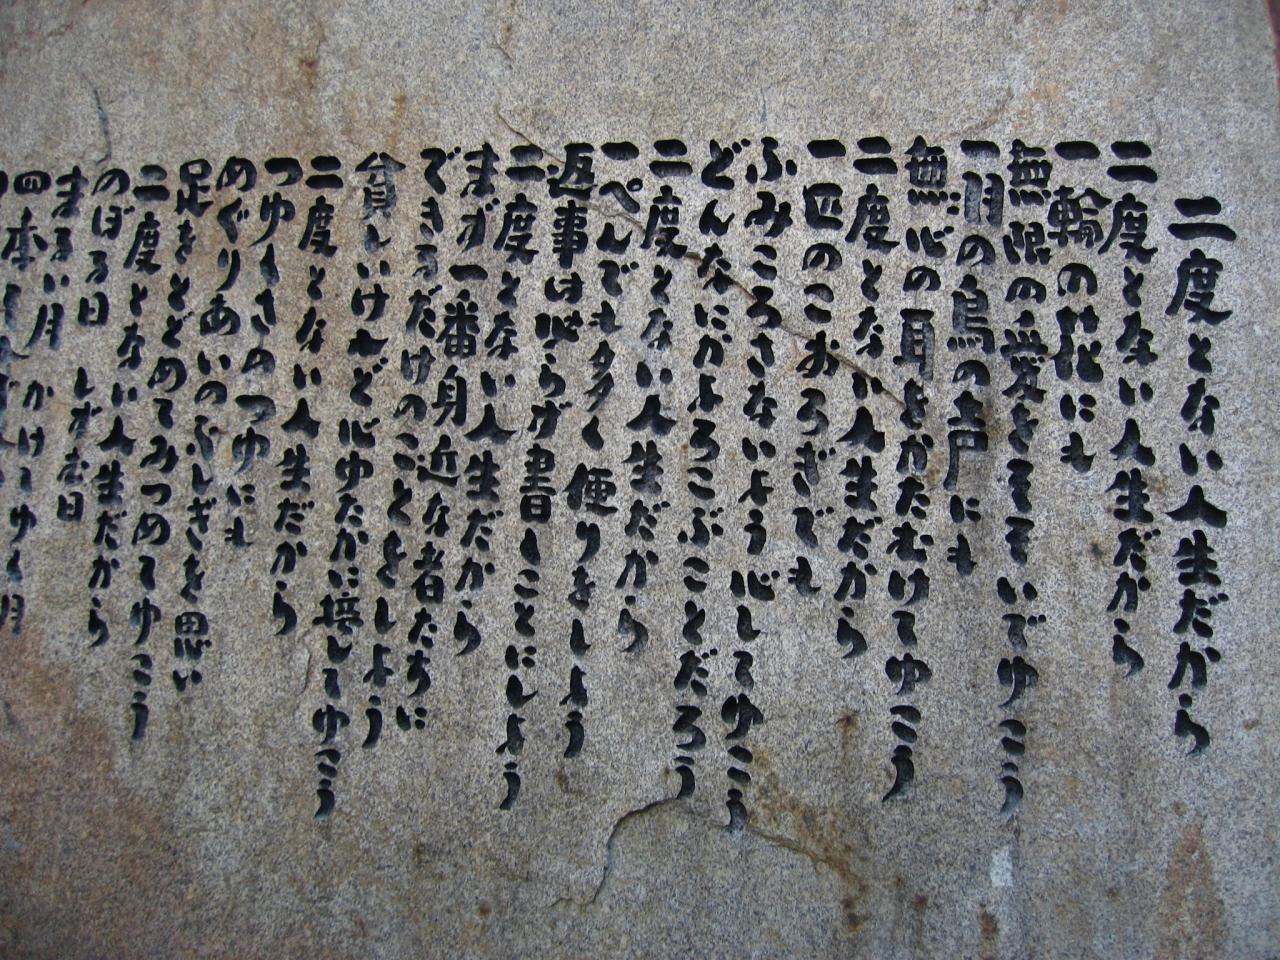 二度とない人生だから
二度とない人生だから
一輪の花にも
無限の愛をそそいでゆこう
一羽の鳥の声にも
無心の耳をかたむけてゆこう
二度とない人生だから
一匹のこおろぎでも
ふみころさないよう心してゆこう
どんなにかよろこぶことだろう
二度とない人生だから
一ぺんでも多く便りをしよう
返事は必らず書くことにしよう
二度とない人生だから
まず一番身近な者たちに
できるだけのことをしよう
貧しいけれど心ゆたかに接してゆこう
二度とない人生だから
つゆくさのつゆにも
めぐりあいのふしぎを思い
足をとどめてみつめてゆこう
二度とない人生だから
のぼる日 しずむ日
まるい月 かけてゆく月
四季